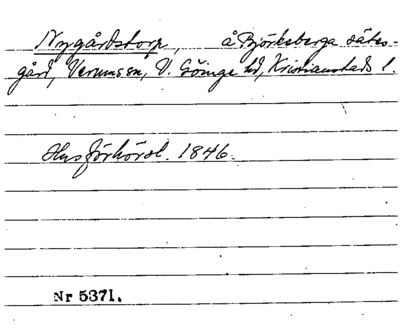 Nygårdstorp, å Björkeberga säte-
gård, Verums sn, V. Göinge hd, Kristianstads l.
Husförhörsl. 1846.
Nr 5371.